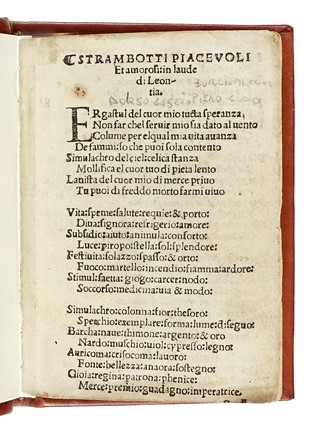 ❡STRAMBOTTI PIACEVOLI
Et amorosi: in laude
di Leon-
tia.
ERgastul del cuor mio tucta speranza
Non far chel seruir mio sia dato al uento
Colume per elqual mia uita auanza
De fammi: so che puoi sola contento
Simulachro del ciel: celica stanza
Mollifica el cuor tuo di pieta lento
Lanista del cuor mio di merce priuo
Tu puoi di freddo morto farmi uiuo
Vita: speme: salute: requie: & porto:
Diua: signora: refrigerio: amore:
Subsidio: aiuto: animula: conforto:
Luce: piropo: stella: sol: splendore:
Festiuita: solazzo: spasso: & orto:
Fuoco: martello: incendio: fiamma: ardore:
Stimul: saetta: giogo: carcer: nodo:
Soccorso: medicina: uia & modo:
Simulachro: colonna: fior: thesoro:
Specchio: exemplare: forma: lume: disegno:
Barcha: naue: thimone: argento: & oro
Nardo: muschio: uiol: cypresso: legno:
Auricoma: crisocoma: lauoro:
Fonte: bellezza: anaora: sostegno:
Gioia: regina: patrona: phenice:
Merce: premio: guadagno: imperatrice.